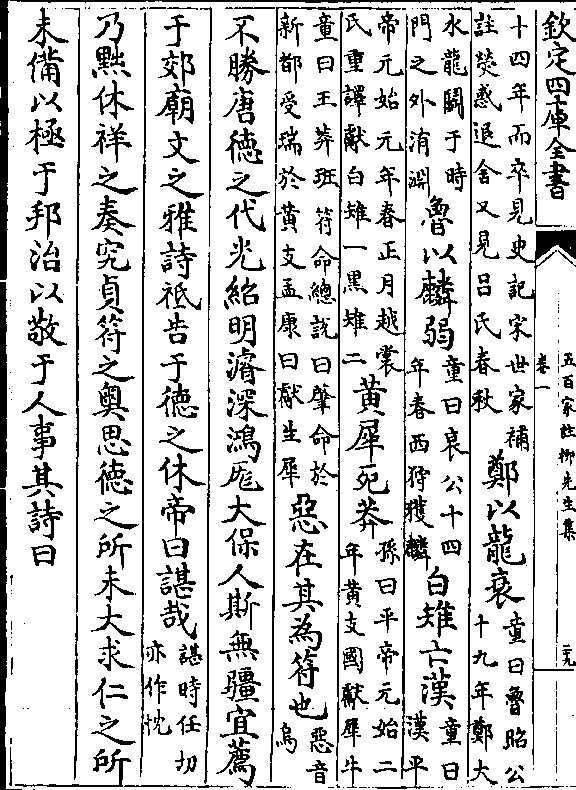 欽定四庫全書
五百家註柳先生集
卷一
二九
十四年而卒見史記宋世家補
註熒惑退舍又見吕氏春秋
鄭以龍衰
童曰魯昭公
十九年鄭大
水龍鬬于時
門之外洧淵
魯以麟弱
童曰哀公十四
年春西狩獲麟
白雉亡漢
童曰
漢平
帝元始元年春正月越裳
氏重譯獻白雉一黒雉二
黄犀死莽
孫曰平帝元始二
年黄支國獻犀牛
童曰王莽班符命總說曰肇命於
新都受瑞於黄支孟康曰獻生犀
惡在其為符也
惡音
烏
不勝唐德之代光紹明濬深鴻厖大保人斯無疆宜薦
于郊廟文之雅詩祗告于德之休帝曰諶哉
諶時任切
亦作忱
乃黜休祥之奏究貞符之奥思德之所未大求仁之所
未備以極于邦治以敬于人事其詩曰